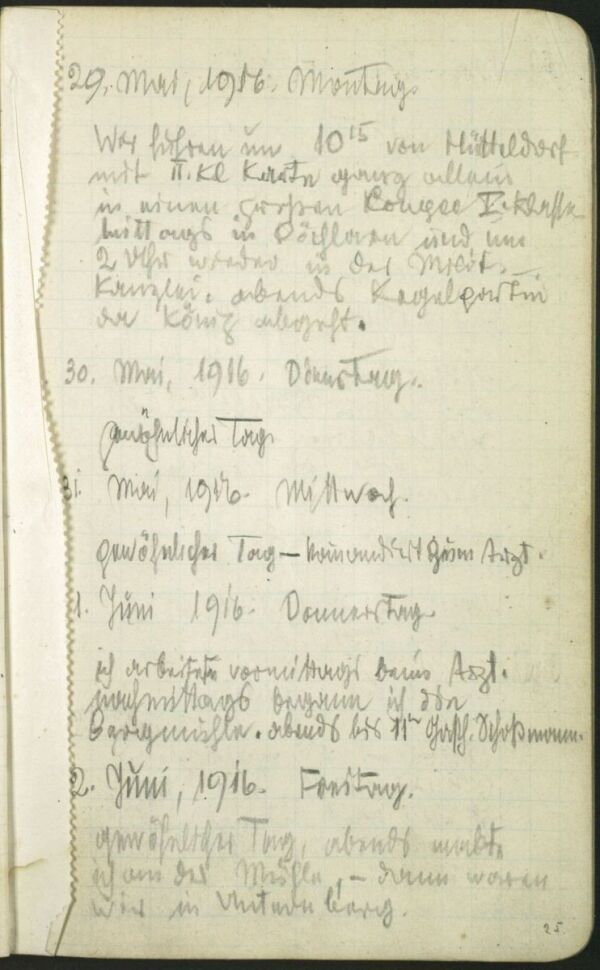 29. Mai, 1916. Montag.
Wir fuhren um 10 15 von Hütteldorf
mit II. Kl Karte ganz allein
in einen großen Koupee I. Klasse
mittags in Pöchlarn und um
2 Uhr wieder in der Milit.-
Kanzlei. abends Kegelpartie
da König abgeht.
30. Mai, 1916. Dienstag.
gewöhnlicher Tag.
31. Mai, 1916. Mittwoch.
gewöhnlicher Tag – komandiert zum Arzt.
1. Juni 1916. Donnerstag.
ich arbeitete vormittags beim Arzt.
nachmittags begann ich die
Bergmühle. abends bis 11h Gasth.
2. Juni, 1916. Freitag.
gewöhnlicher Tag, abends malte
ich an der Mühle, – dann waren
wir in Unternberg.
25